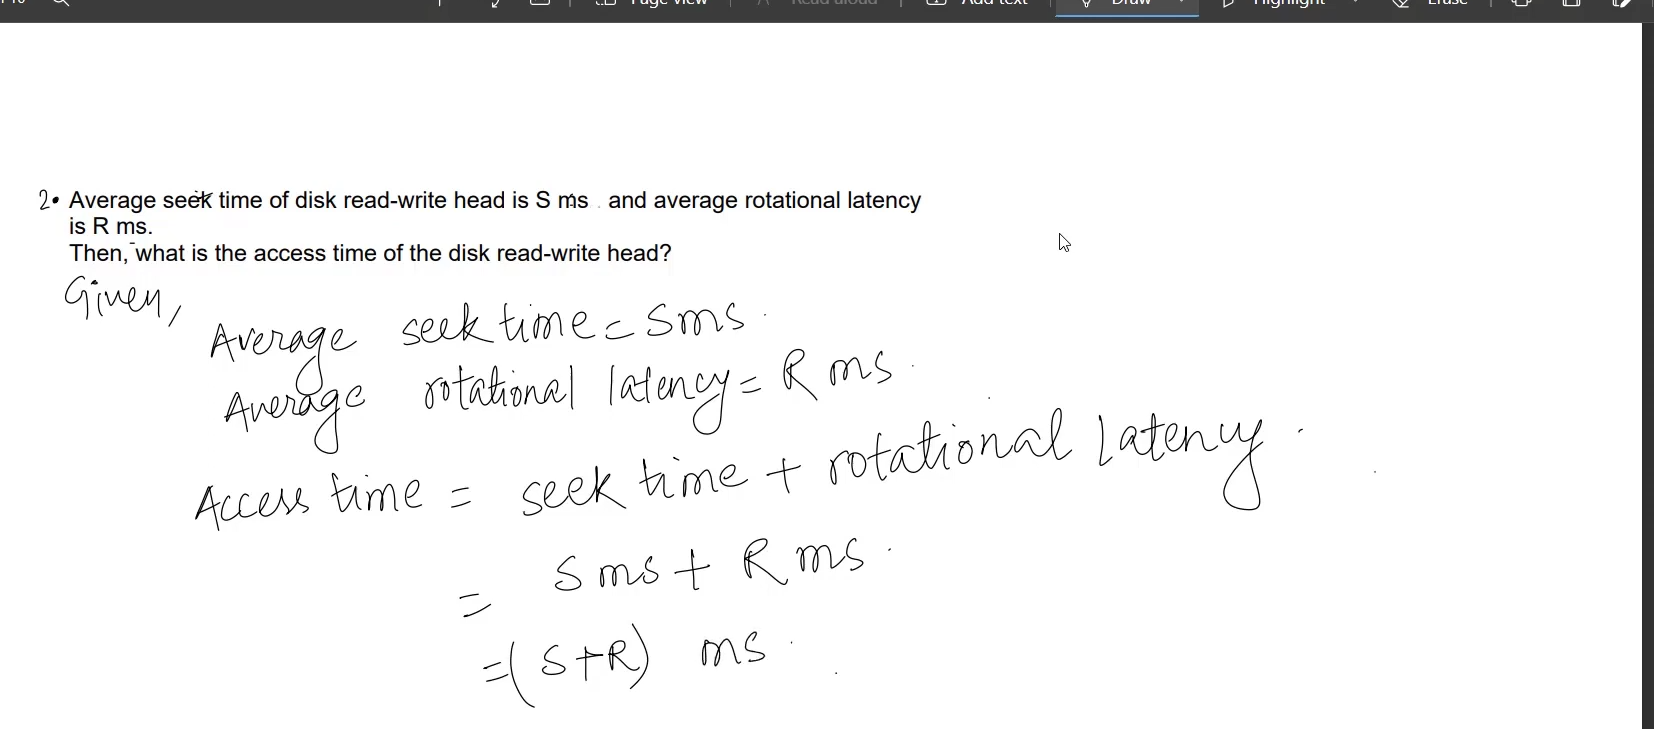 Page view
Read aloud
Add text
Draw
Highlight
Erase
2. Average seek time of disk read-write head is S ms . and average rotational latency
is R ms.
Then, what is the access time of the disk read-write head?
Given,
Average seek time = S ms.
Average rotational latency = R ms.
Access time = seek time + rotational latency.
= S ms + R ms.
= (S+R) ms.